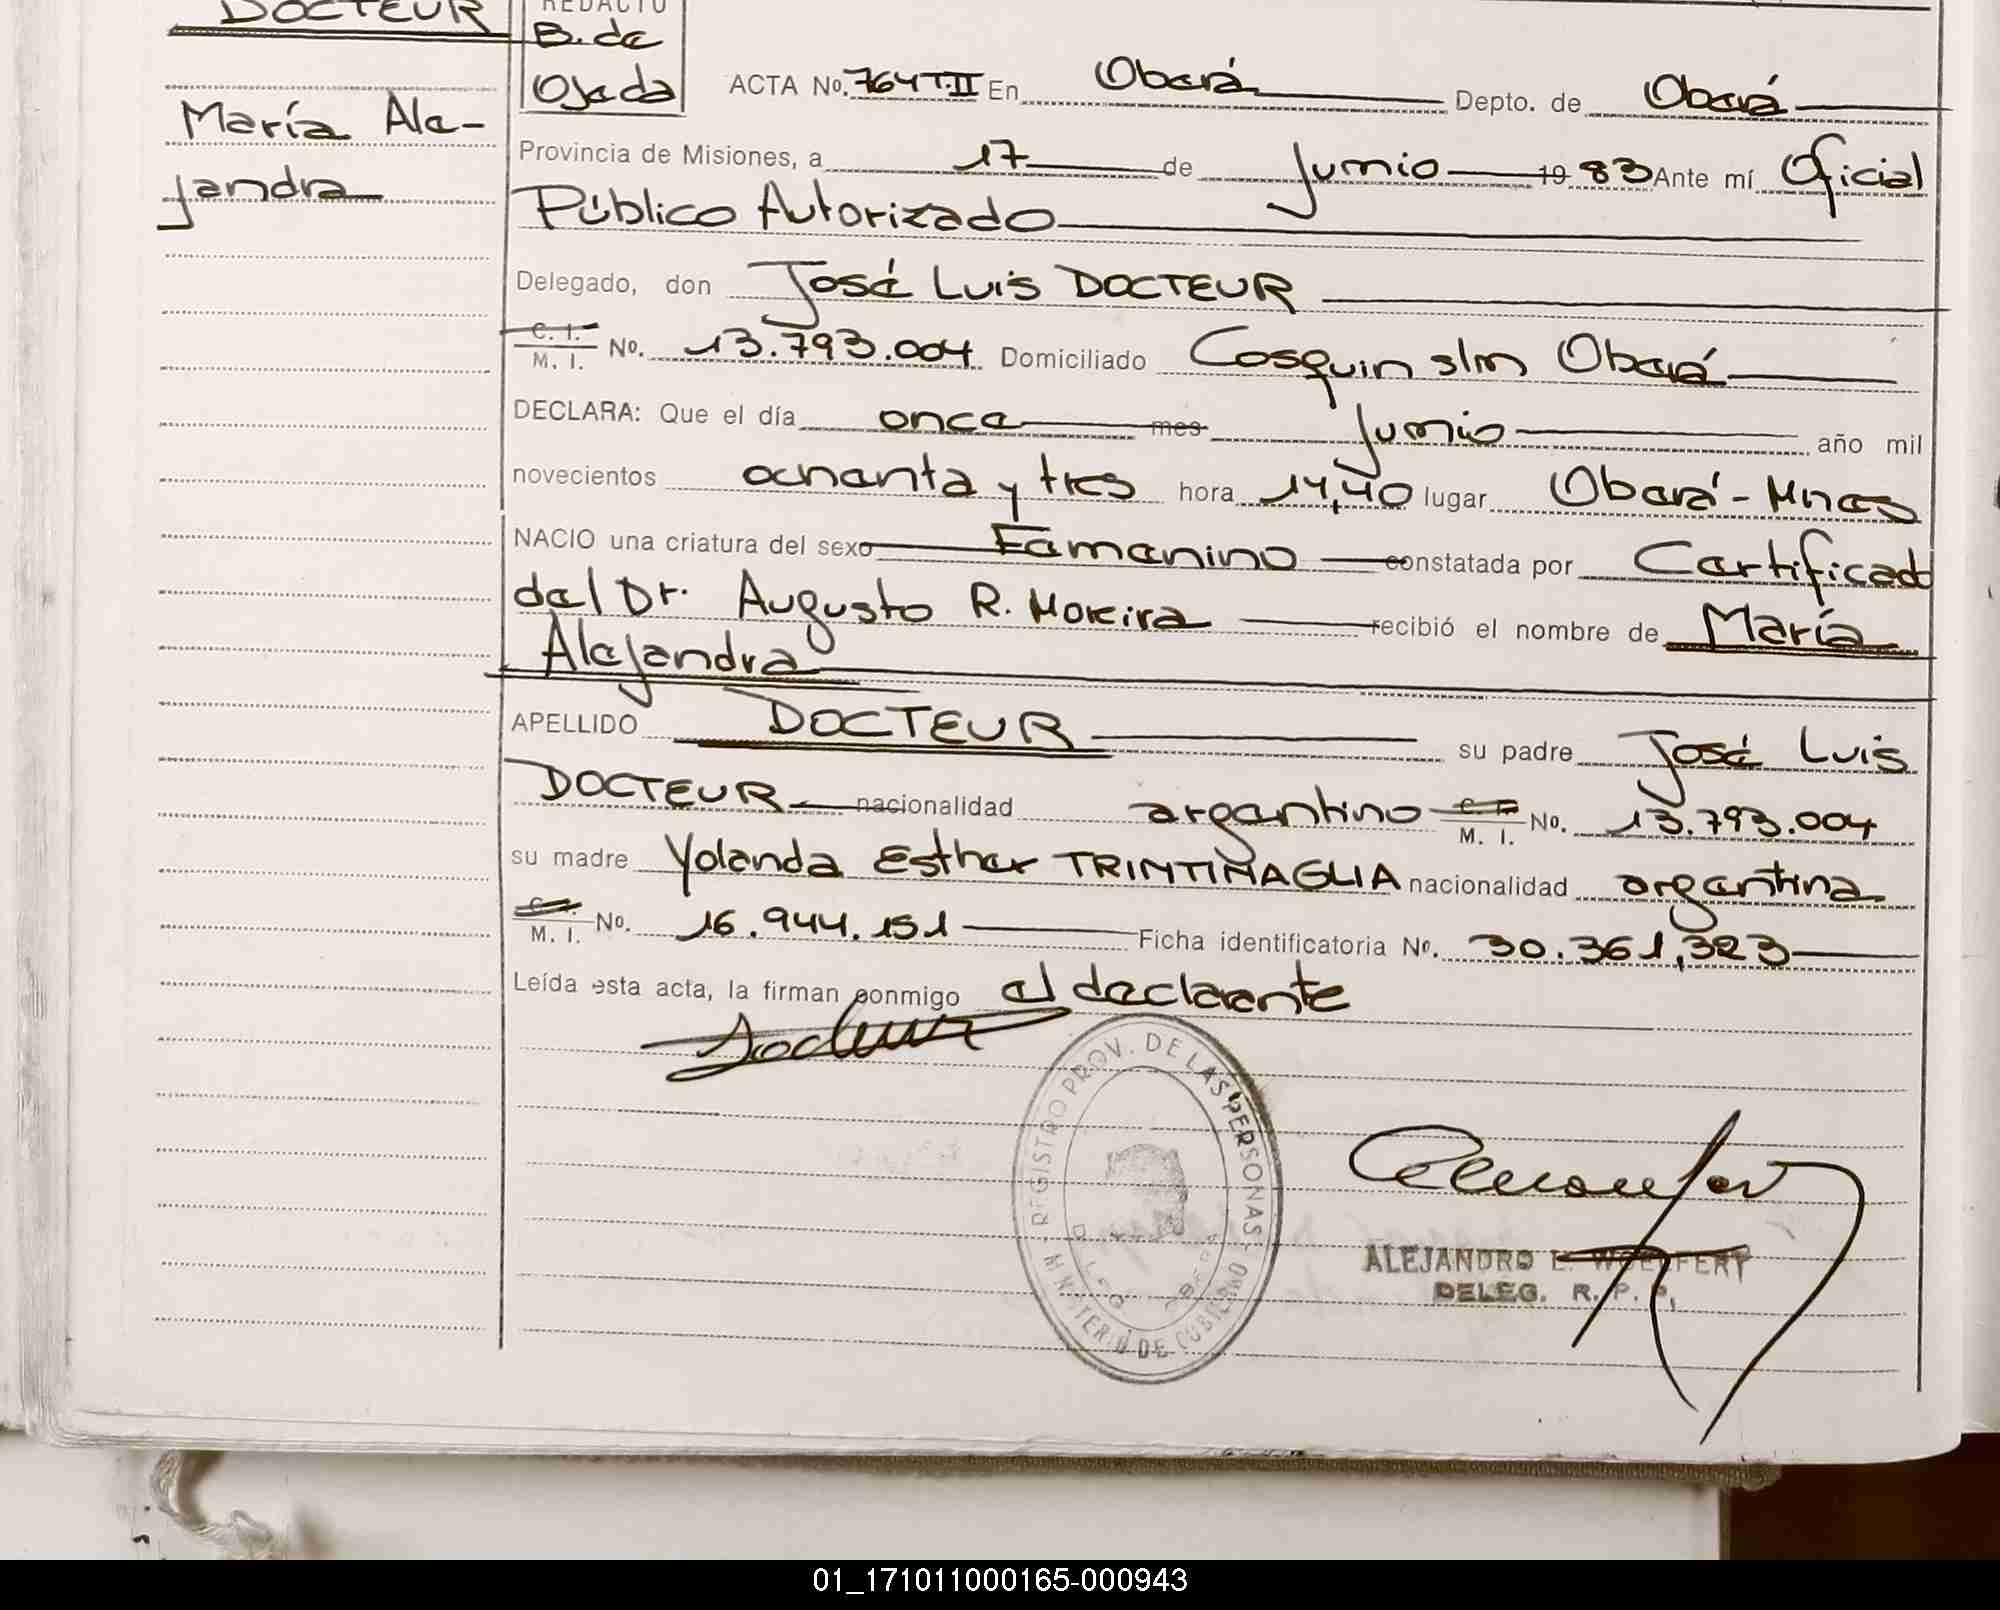 DOCTEUR
María Ale-
jandra
REDACTO
B. de
Ojeda
ACTA No. 764 T. II En Oberá Depto. de Oberá
Provincia de Misiones, a 17 de junio 19 83 Ante mí Oficial
Público Autorizado
Delegado, don José Luis DOCTEUR
C. I. M. I. No. 13.793.004 Domiciliado Cosquin s/n Oberá
DECLARA: Que el día once mes junio año mil
novecientos ochenta y tres hora 14,40 lugar Oberá - Mnes
NACIO una criatura del sexo Femenino constatada por Certificado
del Dr. Augusto R. Moreira recibió el nombre de María
Alejandra
APELLIDO DOCTEUR su padre José Luis
DOCTEUR nacionalidad argentino C. I. M. I. No. 13.793.004
su madre Yolanda Esther TRINTINAGLIA nacionalidad argentina
M. I. No. 16.944.151 Ficha identificatoria No. 30.361,323
Leída esta acta, la firman conmigo el declarante
REGISTRO PROV. DE LAS PERSONAS
MINISTERIO DE GOBIERNO
ALEJANDRO L. WOELFERT
DELEG. R. P. P.
01_171011000165-000943